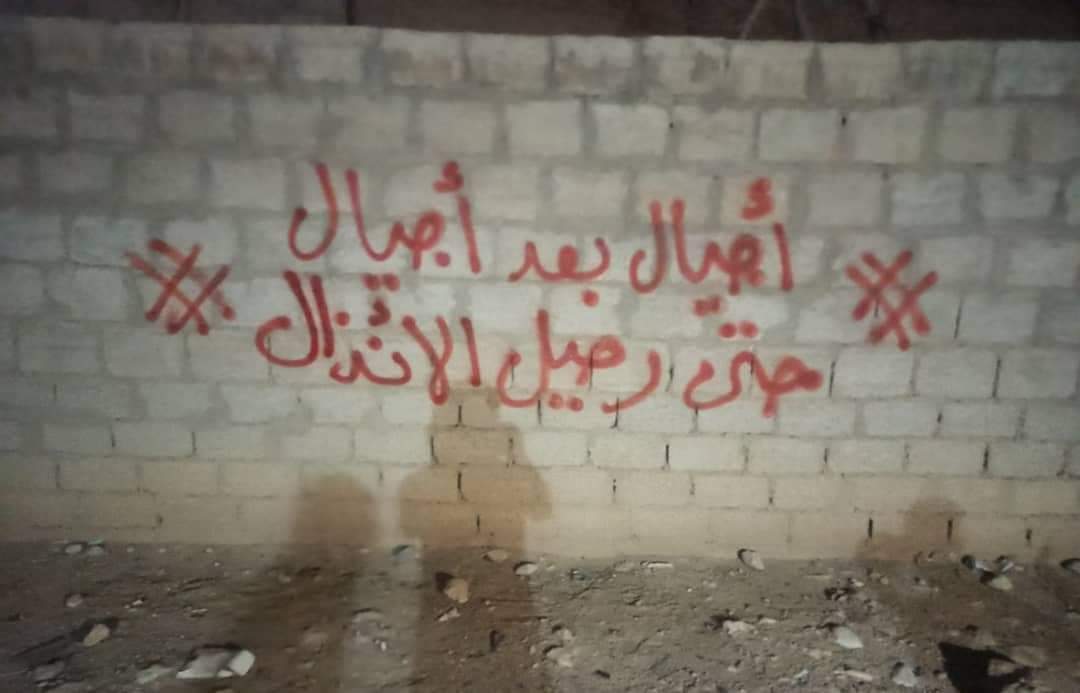 # أجيال بعد أجيال #
حتى رحيل الأنذال